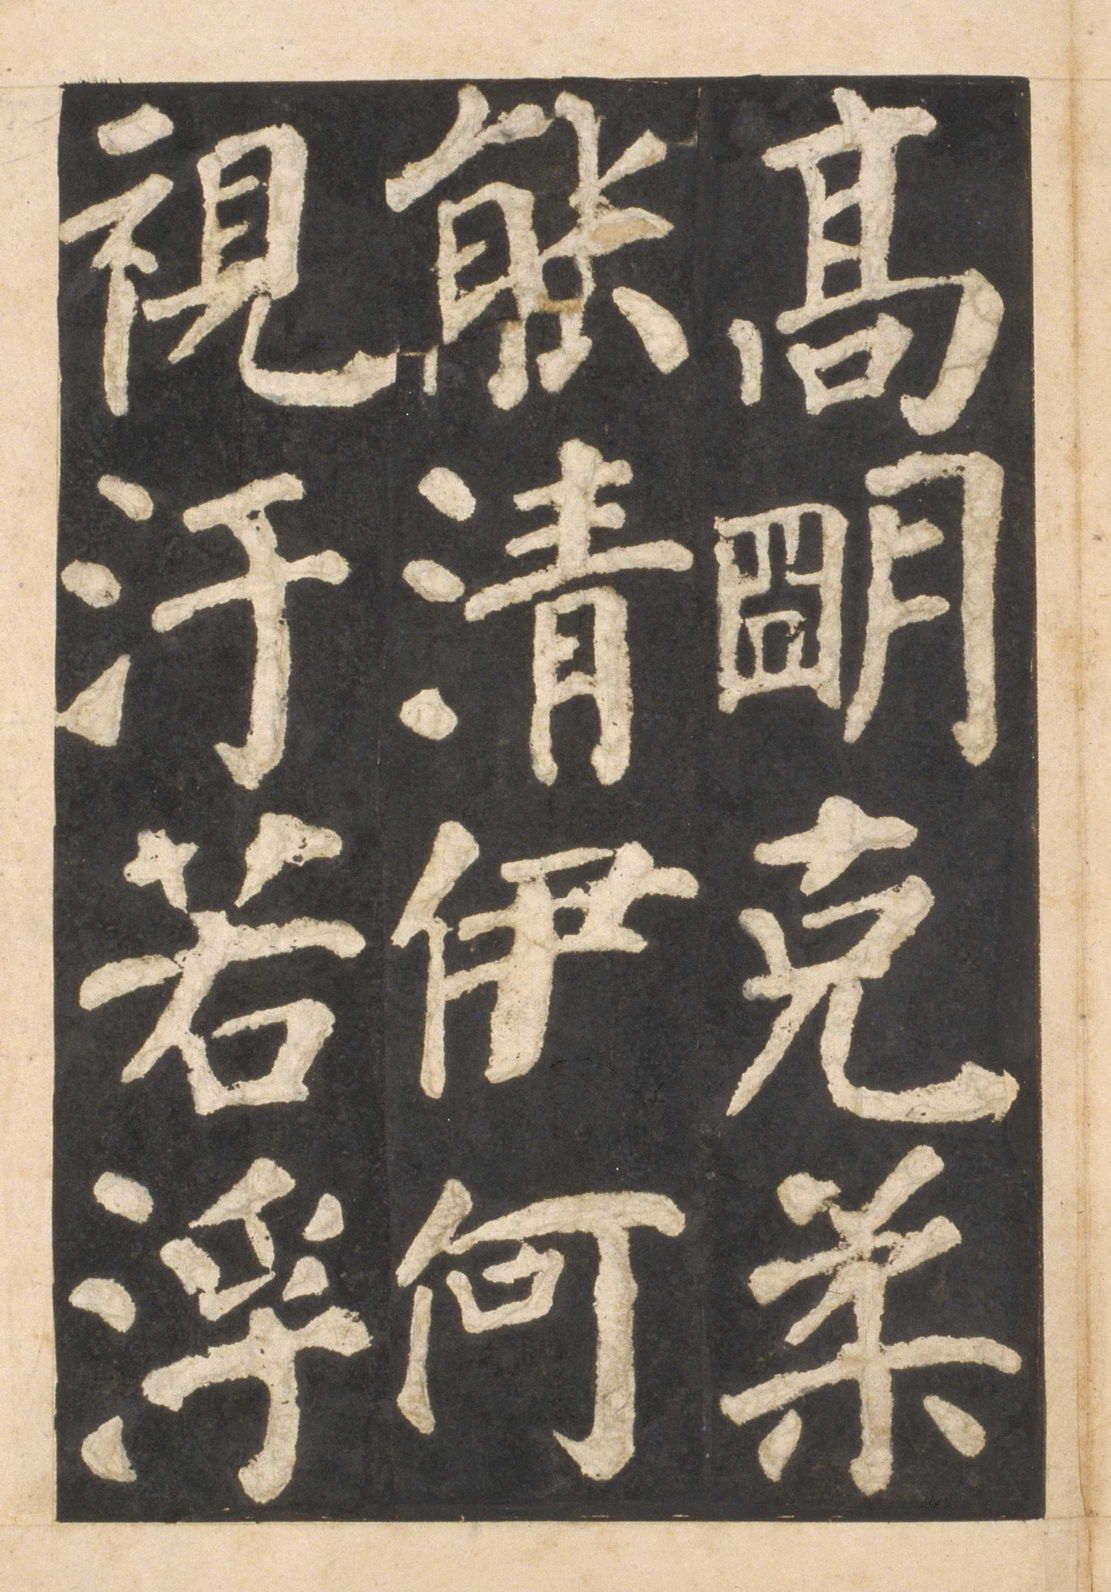 高朙克柔
能清伊何
視汙若浮